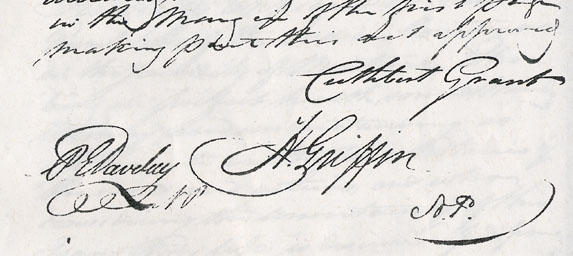 in the Margin of the first page
making part this act approved
Cuthbert Grant
P E Daveluy N P
H. Griffin
N.P.